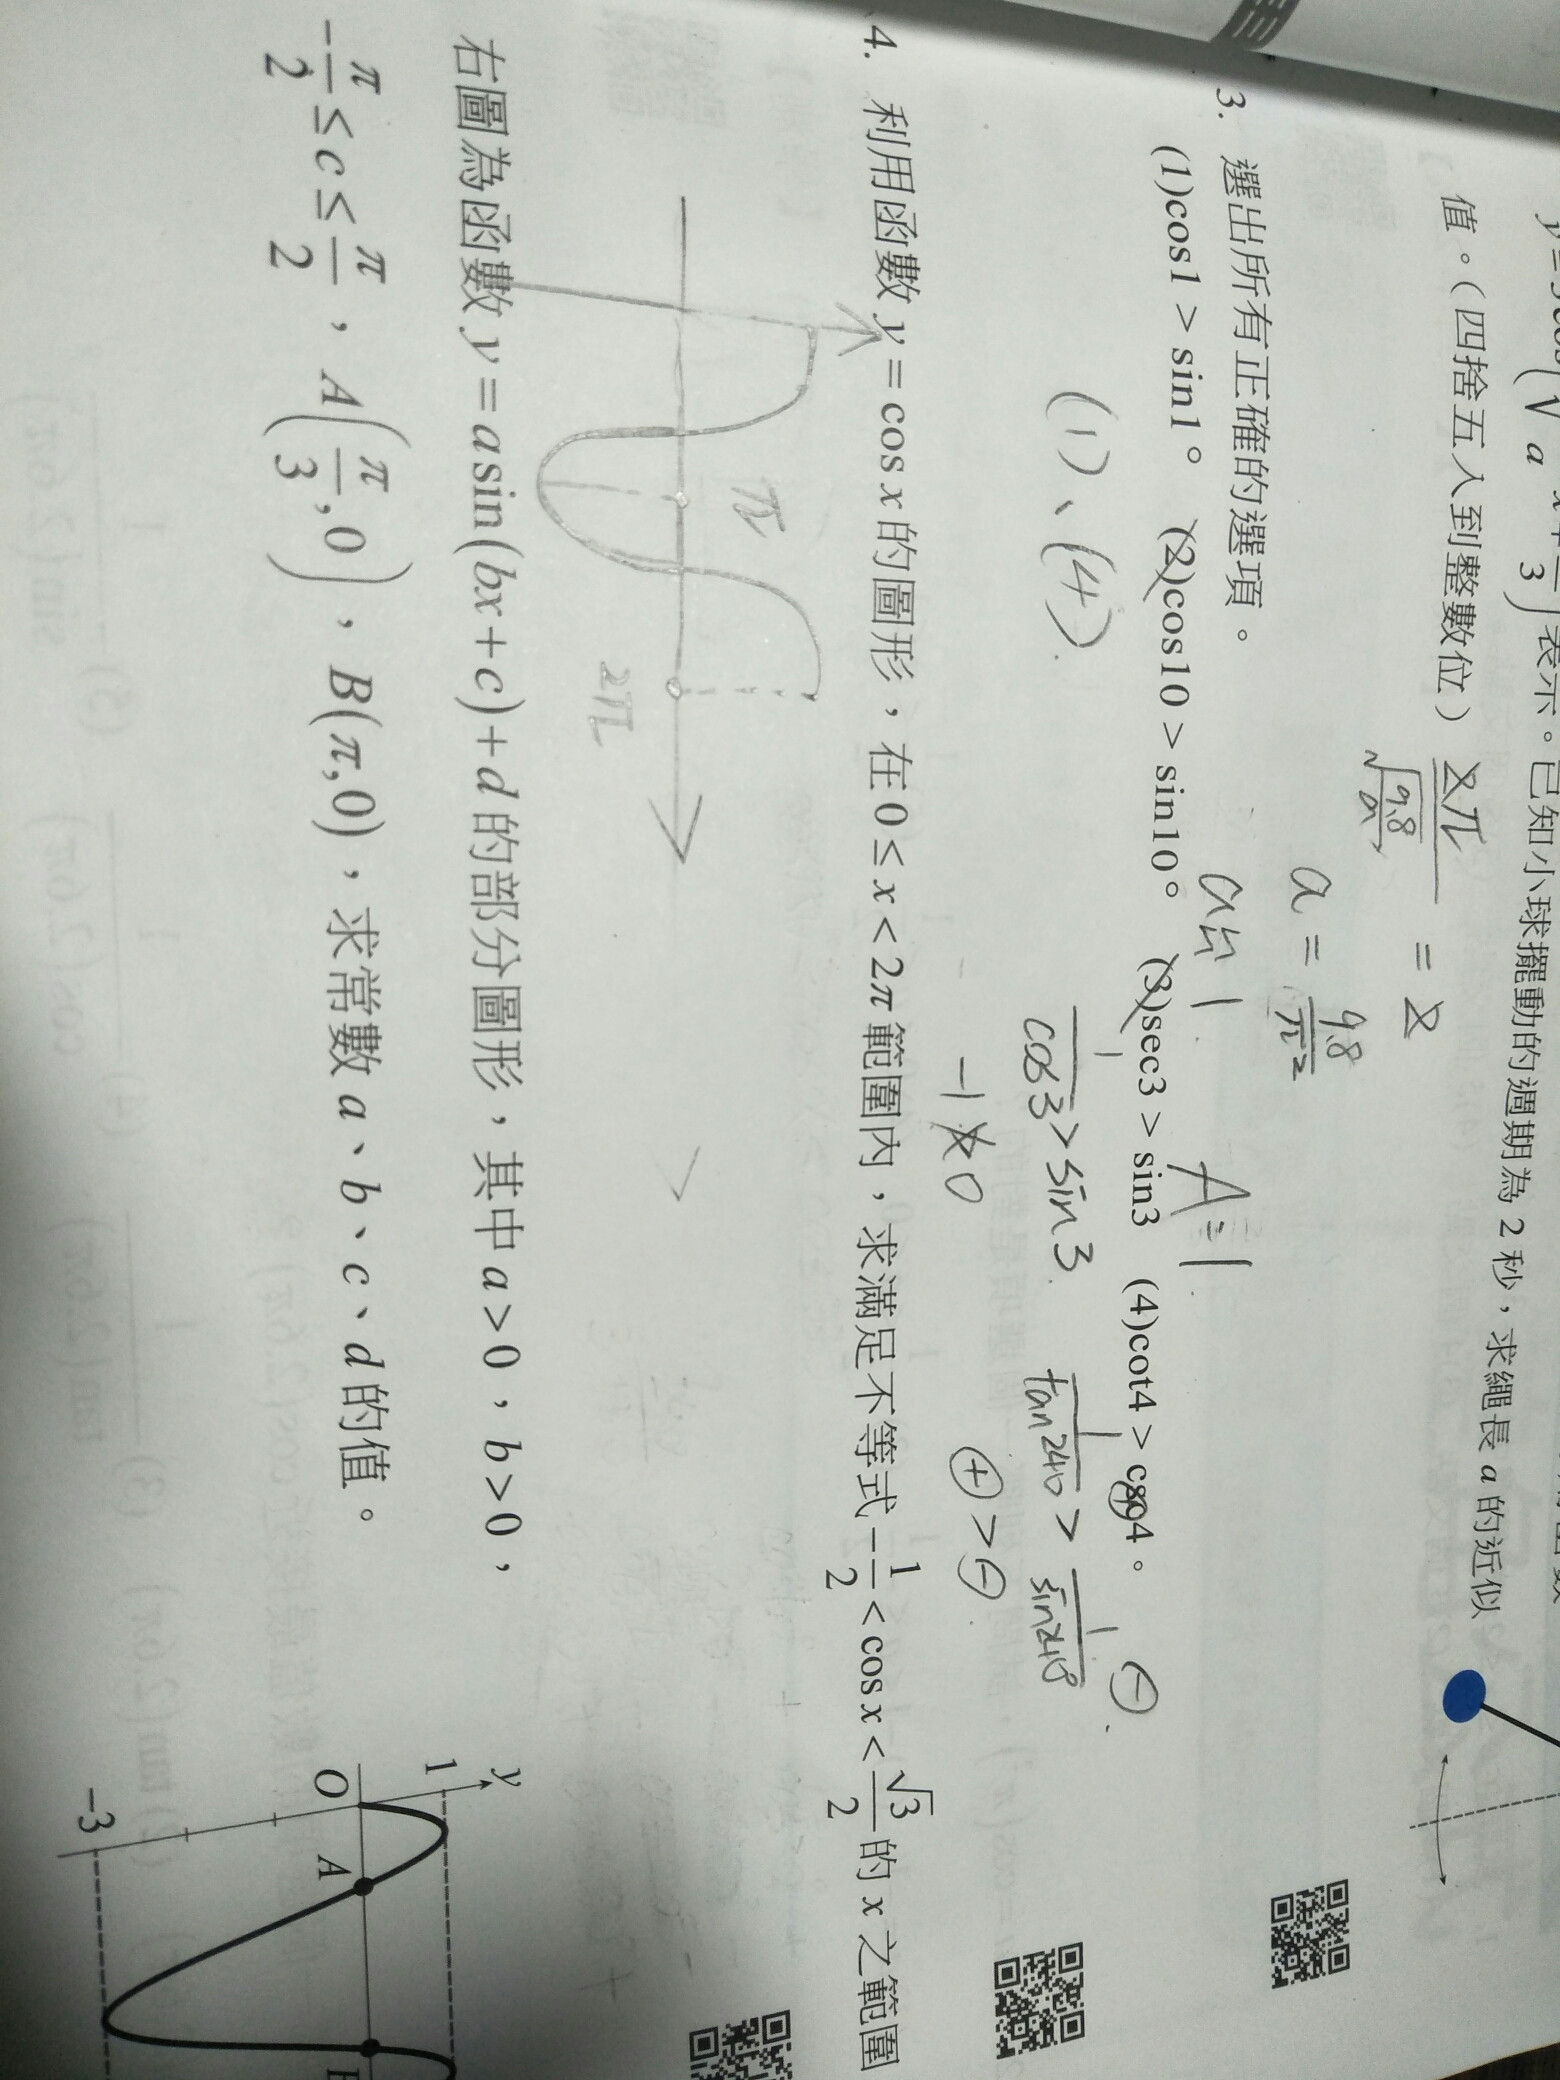 表示。已知小球擺動的週期為2秒,求繩長a的近似
值。(四捨五入到整數位)
2π/√(9.8/a) = 2
a = 9.8/π²
a≒1.
A=1.
3. 選出所有正確的選項。
(1)cos1>sin1° (2)cos10>sin10° (3)sec3>sin3 (4)cot4>csc4。
(1)、(4).
1/cos3>sin3.
-1≯0
1/tan240>1/sin240
⊖.
⊕>⊖.
4. 利用函數y=cosx的圖形,在0≤x<2π範圍內,求滿足不等式-1/2<cosx<√3/2的x之範圍
π
2π
右圖為函數y=asin(bx+c)+d的部分圖形,其中a>0,b>0,
-π/2≤c≤π/2,A(π/3,0),B(π,0),求常數a、b、c、d的值。
y
1
O
A
-3